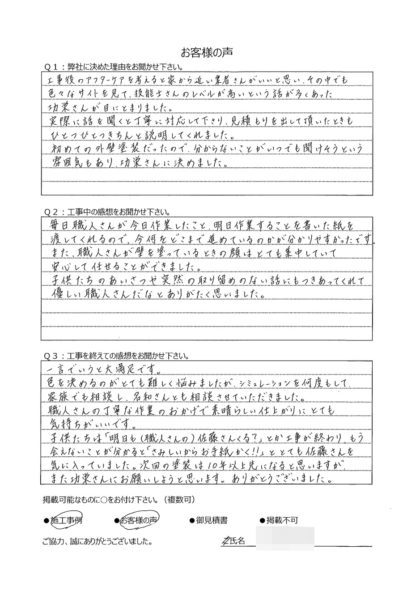 お客様の声
Q1:弊社に決めた理由をお聞かせ下さい。
工事後のアフターケアを考えると家から近い業者さんがいいと思い、その中でも
色々なサイトを見て、技能士さんのレベルが高いという話が多くあった
功栄さんが目にとまりました。
実際に話を聞くと丁寧に対応して下さり、見積もりを出して頂いたときも
ひとつひとつきちんと説明してくれました。
初めての外壁塗装だったので、分からないことがいつでも聞けそうという
雰囲気もあり、功栄さんに決めました。
Q2:工事中の感想をお聞かせ下さい。
毎日職人さんが今日作業したこと、明日作業することを書いた紙を
渡してくれるので、今何をどこまで進めているのかが分かりやすかったです。
また、職人さんが壁を塗っているときの顔はとても集中していて
安心して任せることができました。
子供たちのあいさつや突然の取り留めのない話にもつきあってくれて
優しい職人さんだなとありがたく思いました。
Q3:工事を終えての感想をお聞かせ下さい。
一言でいうと大満足です。
色を決めるのがとても難しく悩みましたが、シミュレーションを何度もして
家族でも相談し、名和さんとも相談させていただきました。
職人さんの丁寧な作業のおかげで素晴らしい仕上がりにとても
気持ちがいいです。
子供たちは「明日も(職人さんの)佐藤さんくる?」とか工事が終わり、もう
会えないことが分かると「さみしいからお手紙かく!!」ととても佐藤さんを
気に入っていました。次回の塗装は10年以上先になると思いますが、
また功栄さんにお願いしようと思います。ありがとうございました。
掲載可能なものに○をお付け下さい。(複数可)
●施工事例 ●お客様の声 ●御見積書 ●掲載不可
ご協力、誠にありがとうございました。
氏名